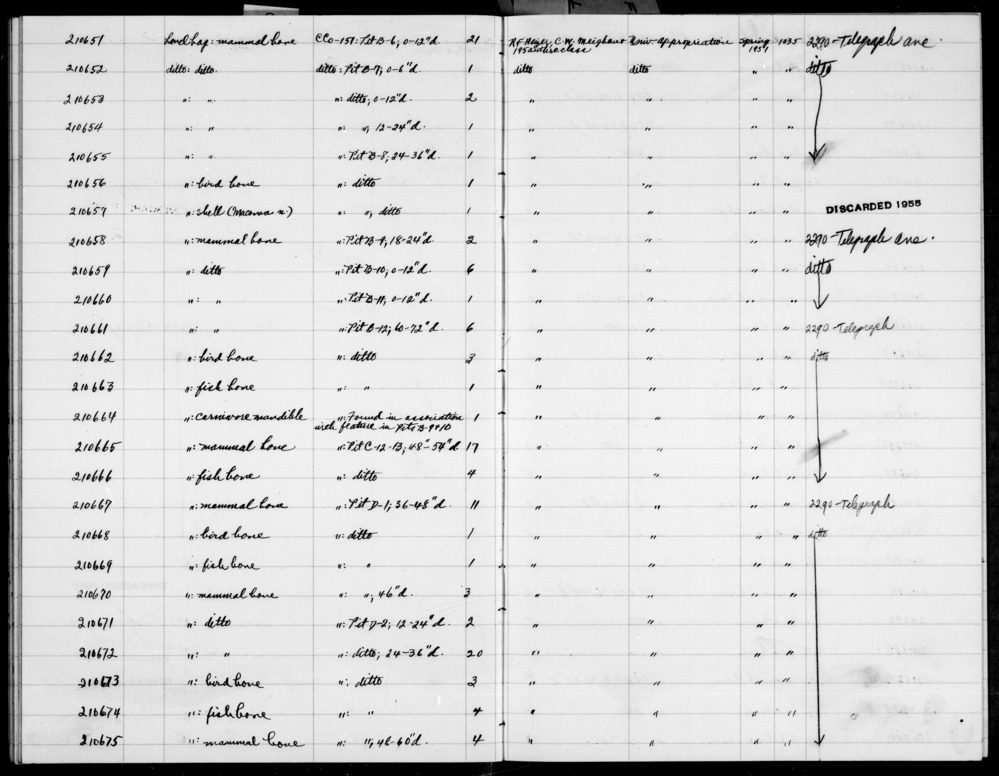 210651 Level bag: mammal bone CCo-151: Pit B-6; 0-12"d. 21 R.F. Heizer, C.W. Meighan & 195 anthro class Univ. appropriation Spring 1951 1035 2290-Telegraph ave.
210652 ditto: ditto ditto: Pit B-7; 0-6"d. 1 ditto ditto " " ditto
210653 ": " ": ditto; 0-12"d. 2 " " " "
210654 ": " ": "; 12-24"d. 1 " " " "
210655 ": " ": Pit B-8; 24-36"d. 1 " " " "
210656 ": bird bone ": ditto 1 " " " "
210657 ": shell (Macoma n.) ": "; ditto 1 " " " " DISCARDED 1955
210658 ": mammal bone ": Pit B-9; 18-24"d. 2 " " " " 2290-Telegraph ave.
210659 ": ditto ": Pit B-10; 0-12"d. 6 " " " " ditto
210660 ": " ": Pit B-11; 0-12"d. 1 " " " "
210661 ": " ": Pit B-12; 60-72"d. 6 " " " " 2290-Telegraph
210662 ": bird bone ": ditto 3 " " " " ditto
210663 ": fish bone ": " 1 " " " "
210664 ": carnivore mandible ": Found in association with feature in Pits B-9 & 10 1 " " " "
210665 ": mammal bone ": Pit C-12-13; 48"-54"d. 17 " " " "
210666 ": fish bone ": ditto 4 " " " "
210667 ": mammal bone ": Pit D-1; 36-48"d. 11 " " " " 2290-Telegraph
210668 ": bird bone ": ditto 1 " " " " ditto
210669 ": fish bone ": " 1 " " " "
210670 ": mammal bone ": "; 46"d. 3 " " " "
210671 ": ditto ": Pit D-2; 12-24"d. 2 " " " "
210672 ": " ": ditto; 24-36"d. 20 " " " "
210673 ": bird bone ": ditto 3 " " " "
210674 ": fish bone ": " 4 " " " "
210675 ": mammal bone ": "; 48-60"d. 4 " " " "